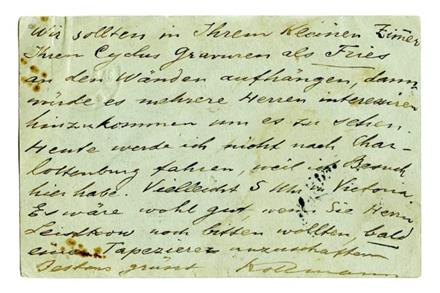 Wir sollten in Ihrem kleinen Zimmer
Ihren Cyclus Gravuren als Fries
an den Wänden aufhängen, dann
würde es mehrere Herren interessiren
hinzukommen um es zu sehen.
Heute werde ich nicht nach Char-
lottenburg fahren, weil ich Besuch
hier habe. Vielleicht 5 Uhr Victoria
Es wäre wohl gut, wenn Sie Herrn
Leistikow noch bitten wollten bald
einen Tapezierer anzuschaffen
Bestens grüsst